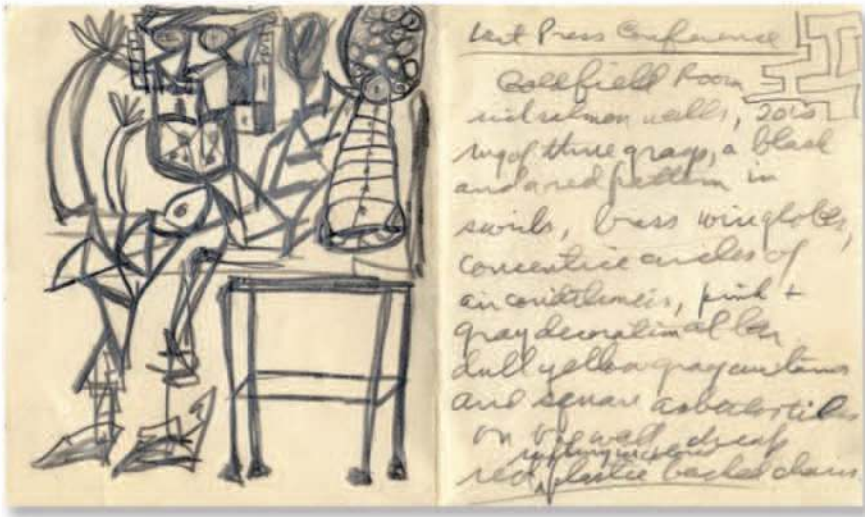 Last Press Conference
Goldfield Room
walls, 20's
rug of three grays, a black
and a red pattern in
swirls, brass wire globes,
concentric circles of
air conditioners, pink +
gray decoration at bar
dull yellow gray curtains
and square asbestos tiles
on the wall cheap
red plastic backed chairs